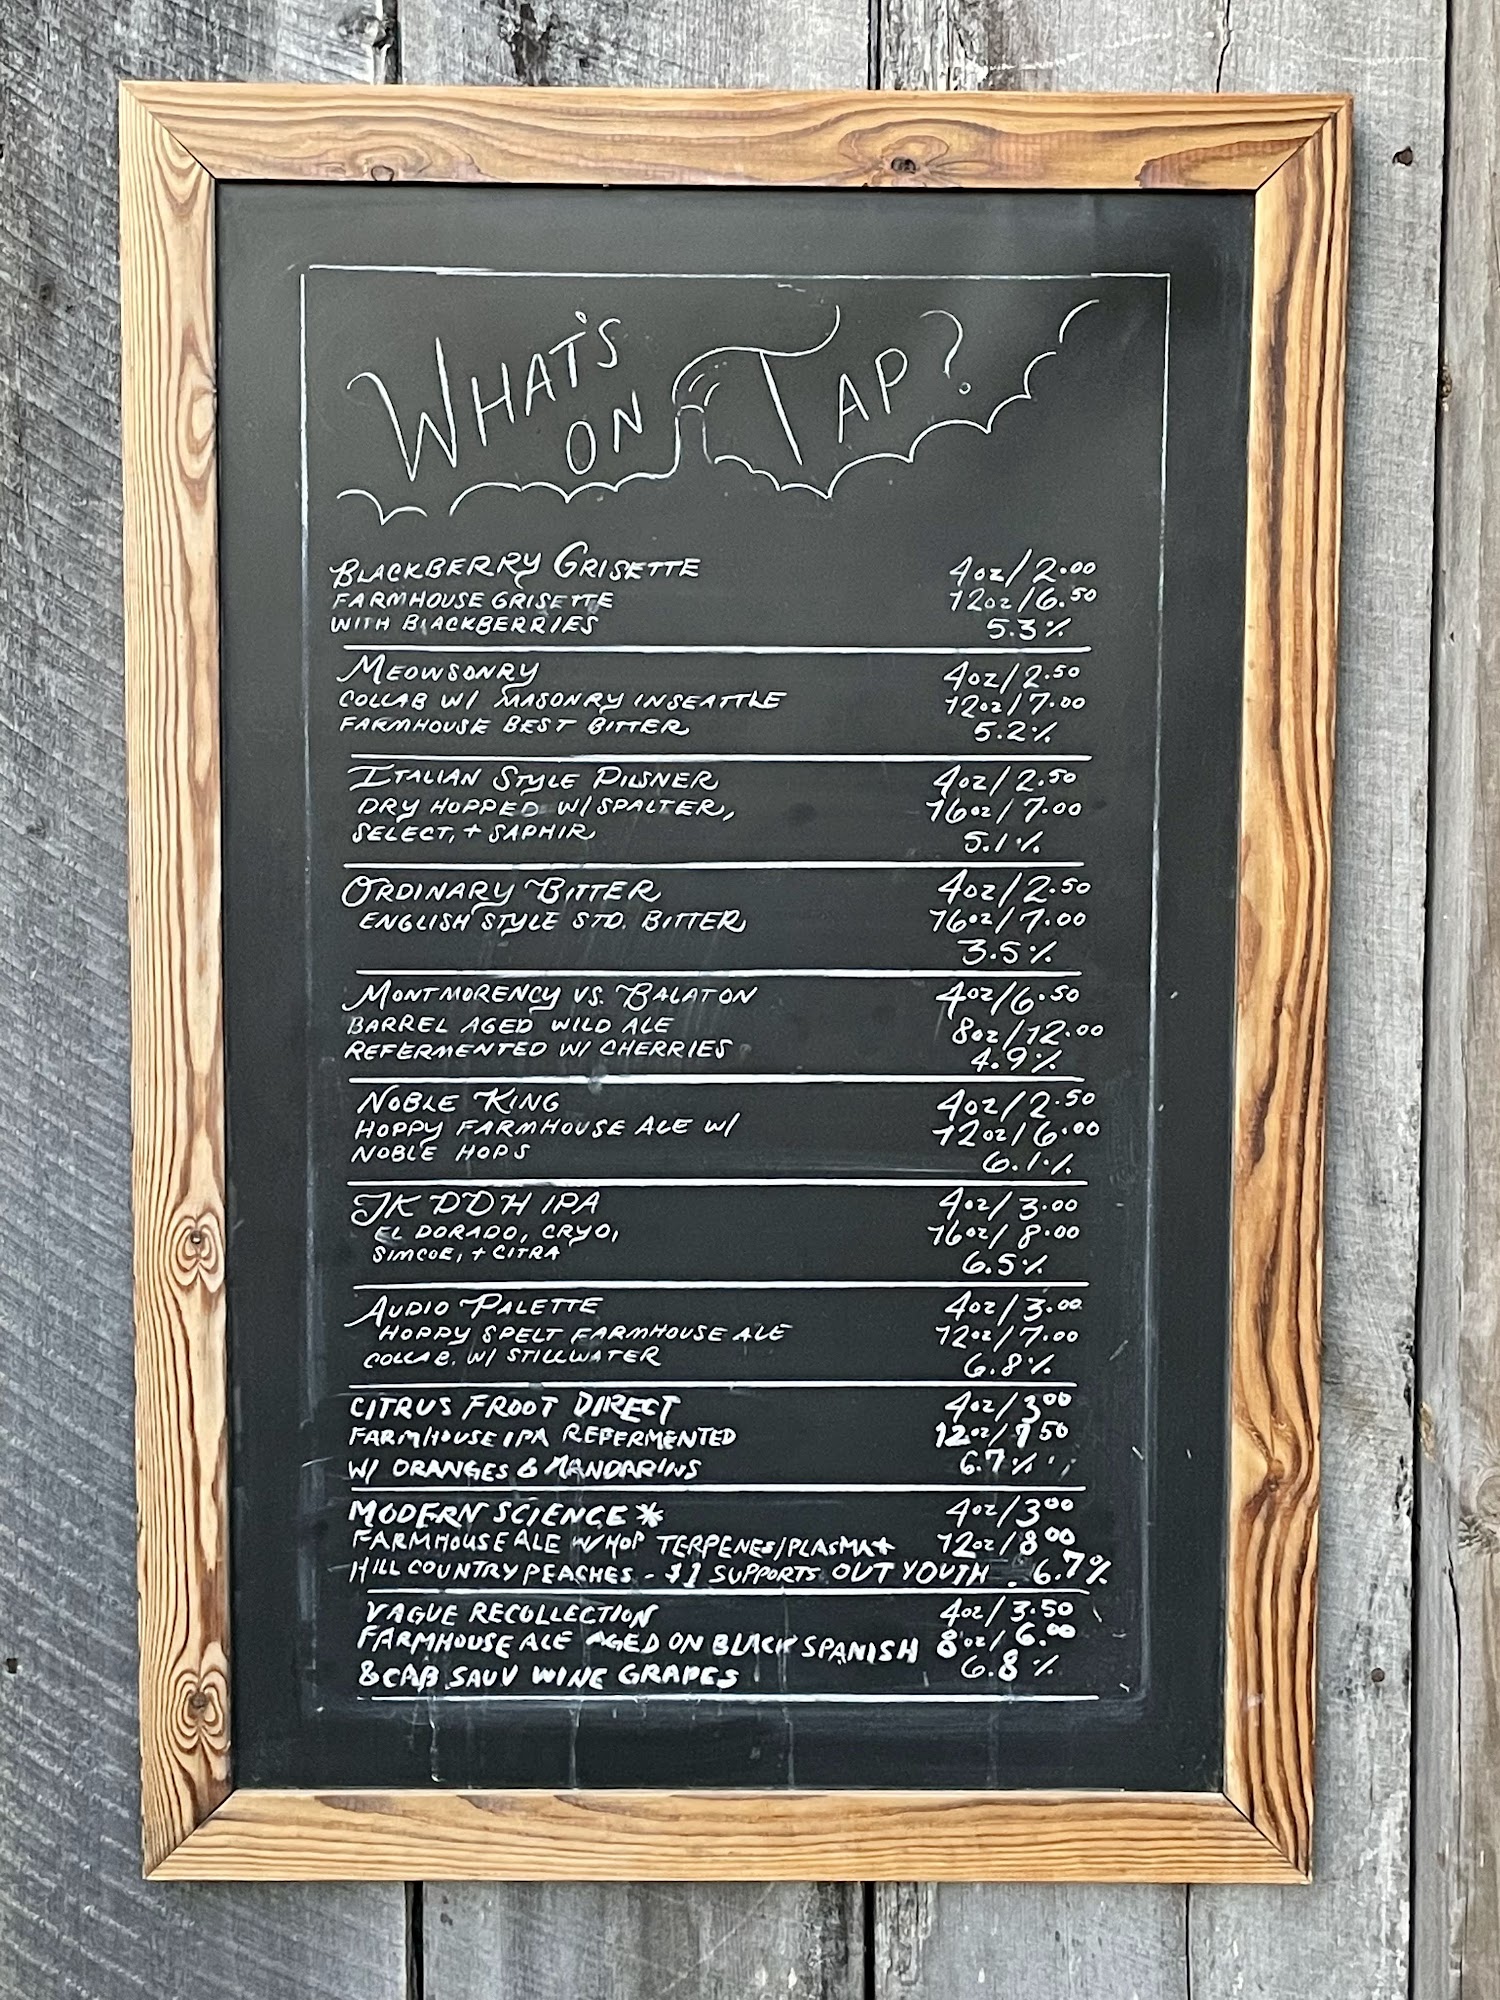 WHAT'S
ON TAP?
BLACKBERRY GRISETTE 4oz/2.00
FARMHOUSE GRISETTE 12oz/6.50
WITH BLACKBERRIES 5.3%
MEOWSONRY 4oz/2.50
COLLAB W/ MASONRY IN SEATTLE 12oz/7.00
FARMHOUSE BEST BITTER 5.2%
ITALIAN STYLE PILSNER 4oz/2.50
DRY HOPPED W/ SPALTER, 16oz/7.00
SELECT, + SAPHIR 5.1%
ORDINARY BITTER 4oz/2.50
ENGLISH STYLE STD. BITTER 16oz/7.00
3.5%
MONTMORENCY VS. BALATON 4oz/6.50
BARREL AGED WILD ALE 8oz/12.00
REFERMENTED W/ CHERRIES 4.9%
NOBLE KING 4oz/2.50
HOPPY FARMHOUSE ALE W/ 12oz/6.00
NOBLE HOPS 6.1%
JK DDH IPA 4oz/3.00
EL DORADO, CRYO, 16oz/8.00
SIMCOE, + CITRA 6.5%
AUDIO PALETTE 4oz/3.00
HOPPY SPELT FARMHOUSE ALE 12oz/7.00
COLLAB. W/ STILLWATER 6.8%
CITRUS FROOT DIRECT 4oz/3.00
FARMHOUSE IPA REFERMENTED 12oz/7.50
W/ ORANGES & MANDARINS 6.7%
MODERN SCIENCE * 4oz/3.00
FARMHOUSE ALE W/ HOP TERPENES/PLASMA + 12oz/8.00
HILL COUNTRY PEACHES - $1 SUPPORTS OUT YOUTH. 6.7%
VAGUE RECOLLECTION 4oz/3.50
FARMHOUSE ALE AGED ON BLACK SPANISH 8oz/6.00
& CAB SAUV WINE GRAPES 6.8%